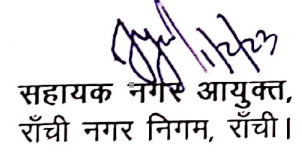 1/2/23
सहायक नगर आयुक्त,
राँची नगर निगम, राँची।